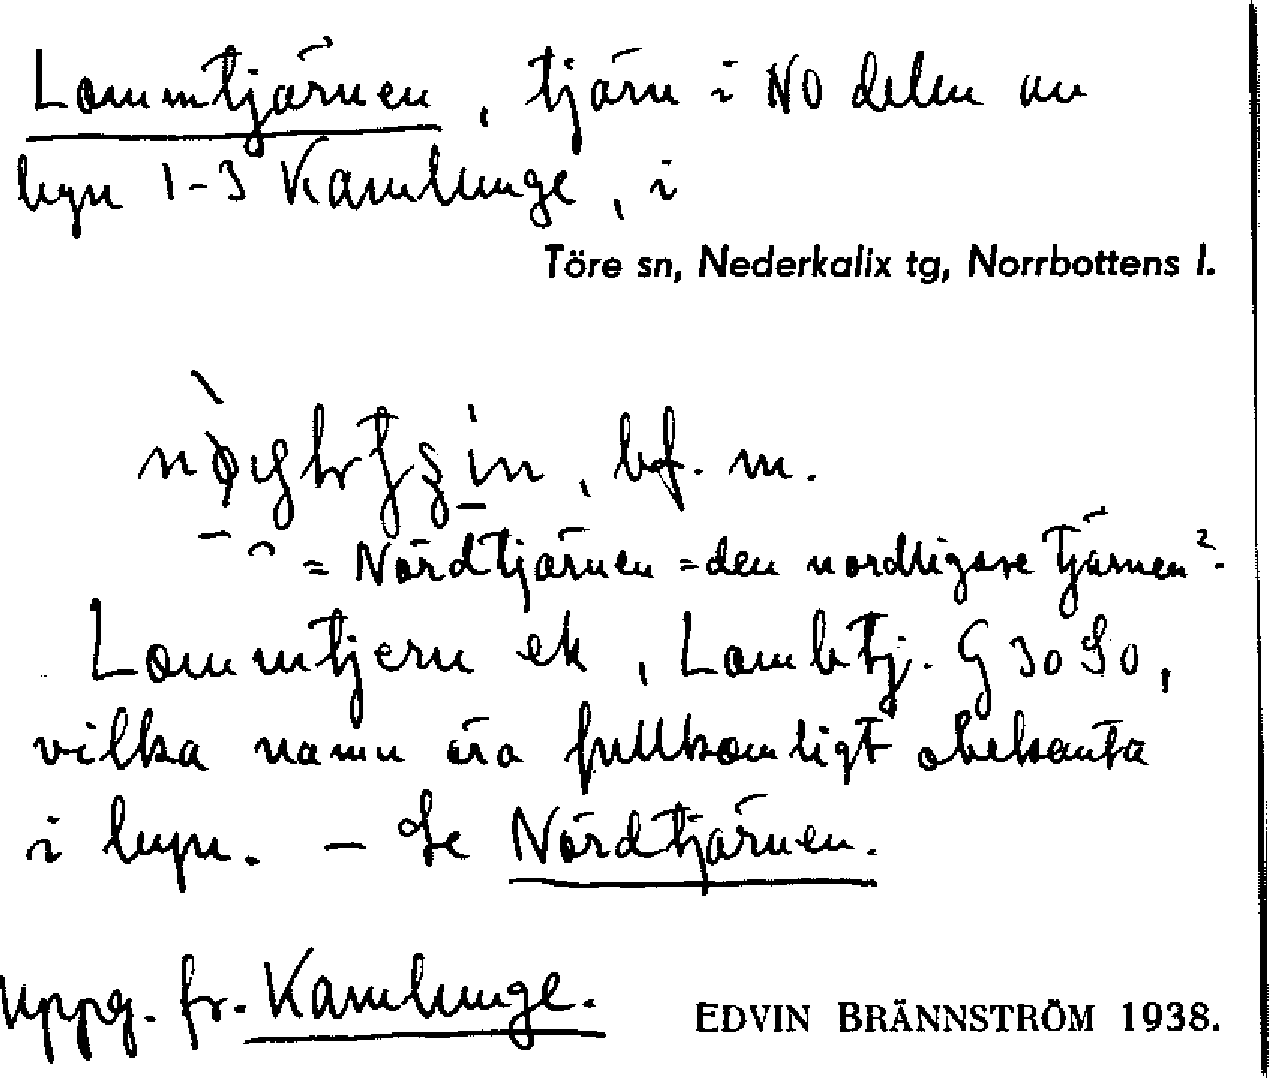 Lommtjärnen, tjärn i NO delen av
byn 1-3 Kamlunge, i
Töre sn, Nederkalix tg, Norrbottens l.
bf. m.
= Nördtjärnen = den nordligare Tjärnen².
Lommtjern ek, Lombtj. G 30 S0,
vilka namn äro fullkomligt obekanta
i byn. – Se Nördtjärnen.
Uppg. fr. Kamlunge. EDVIN BRÄNNSTRÖM 1938.